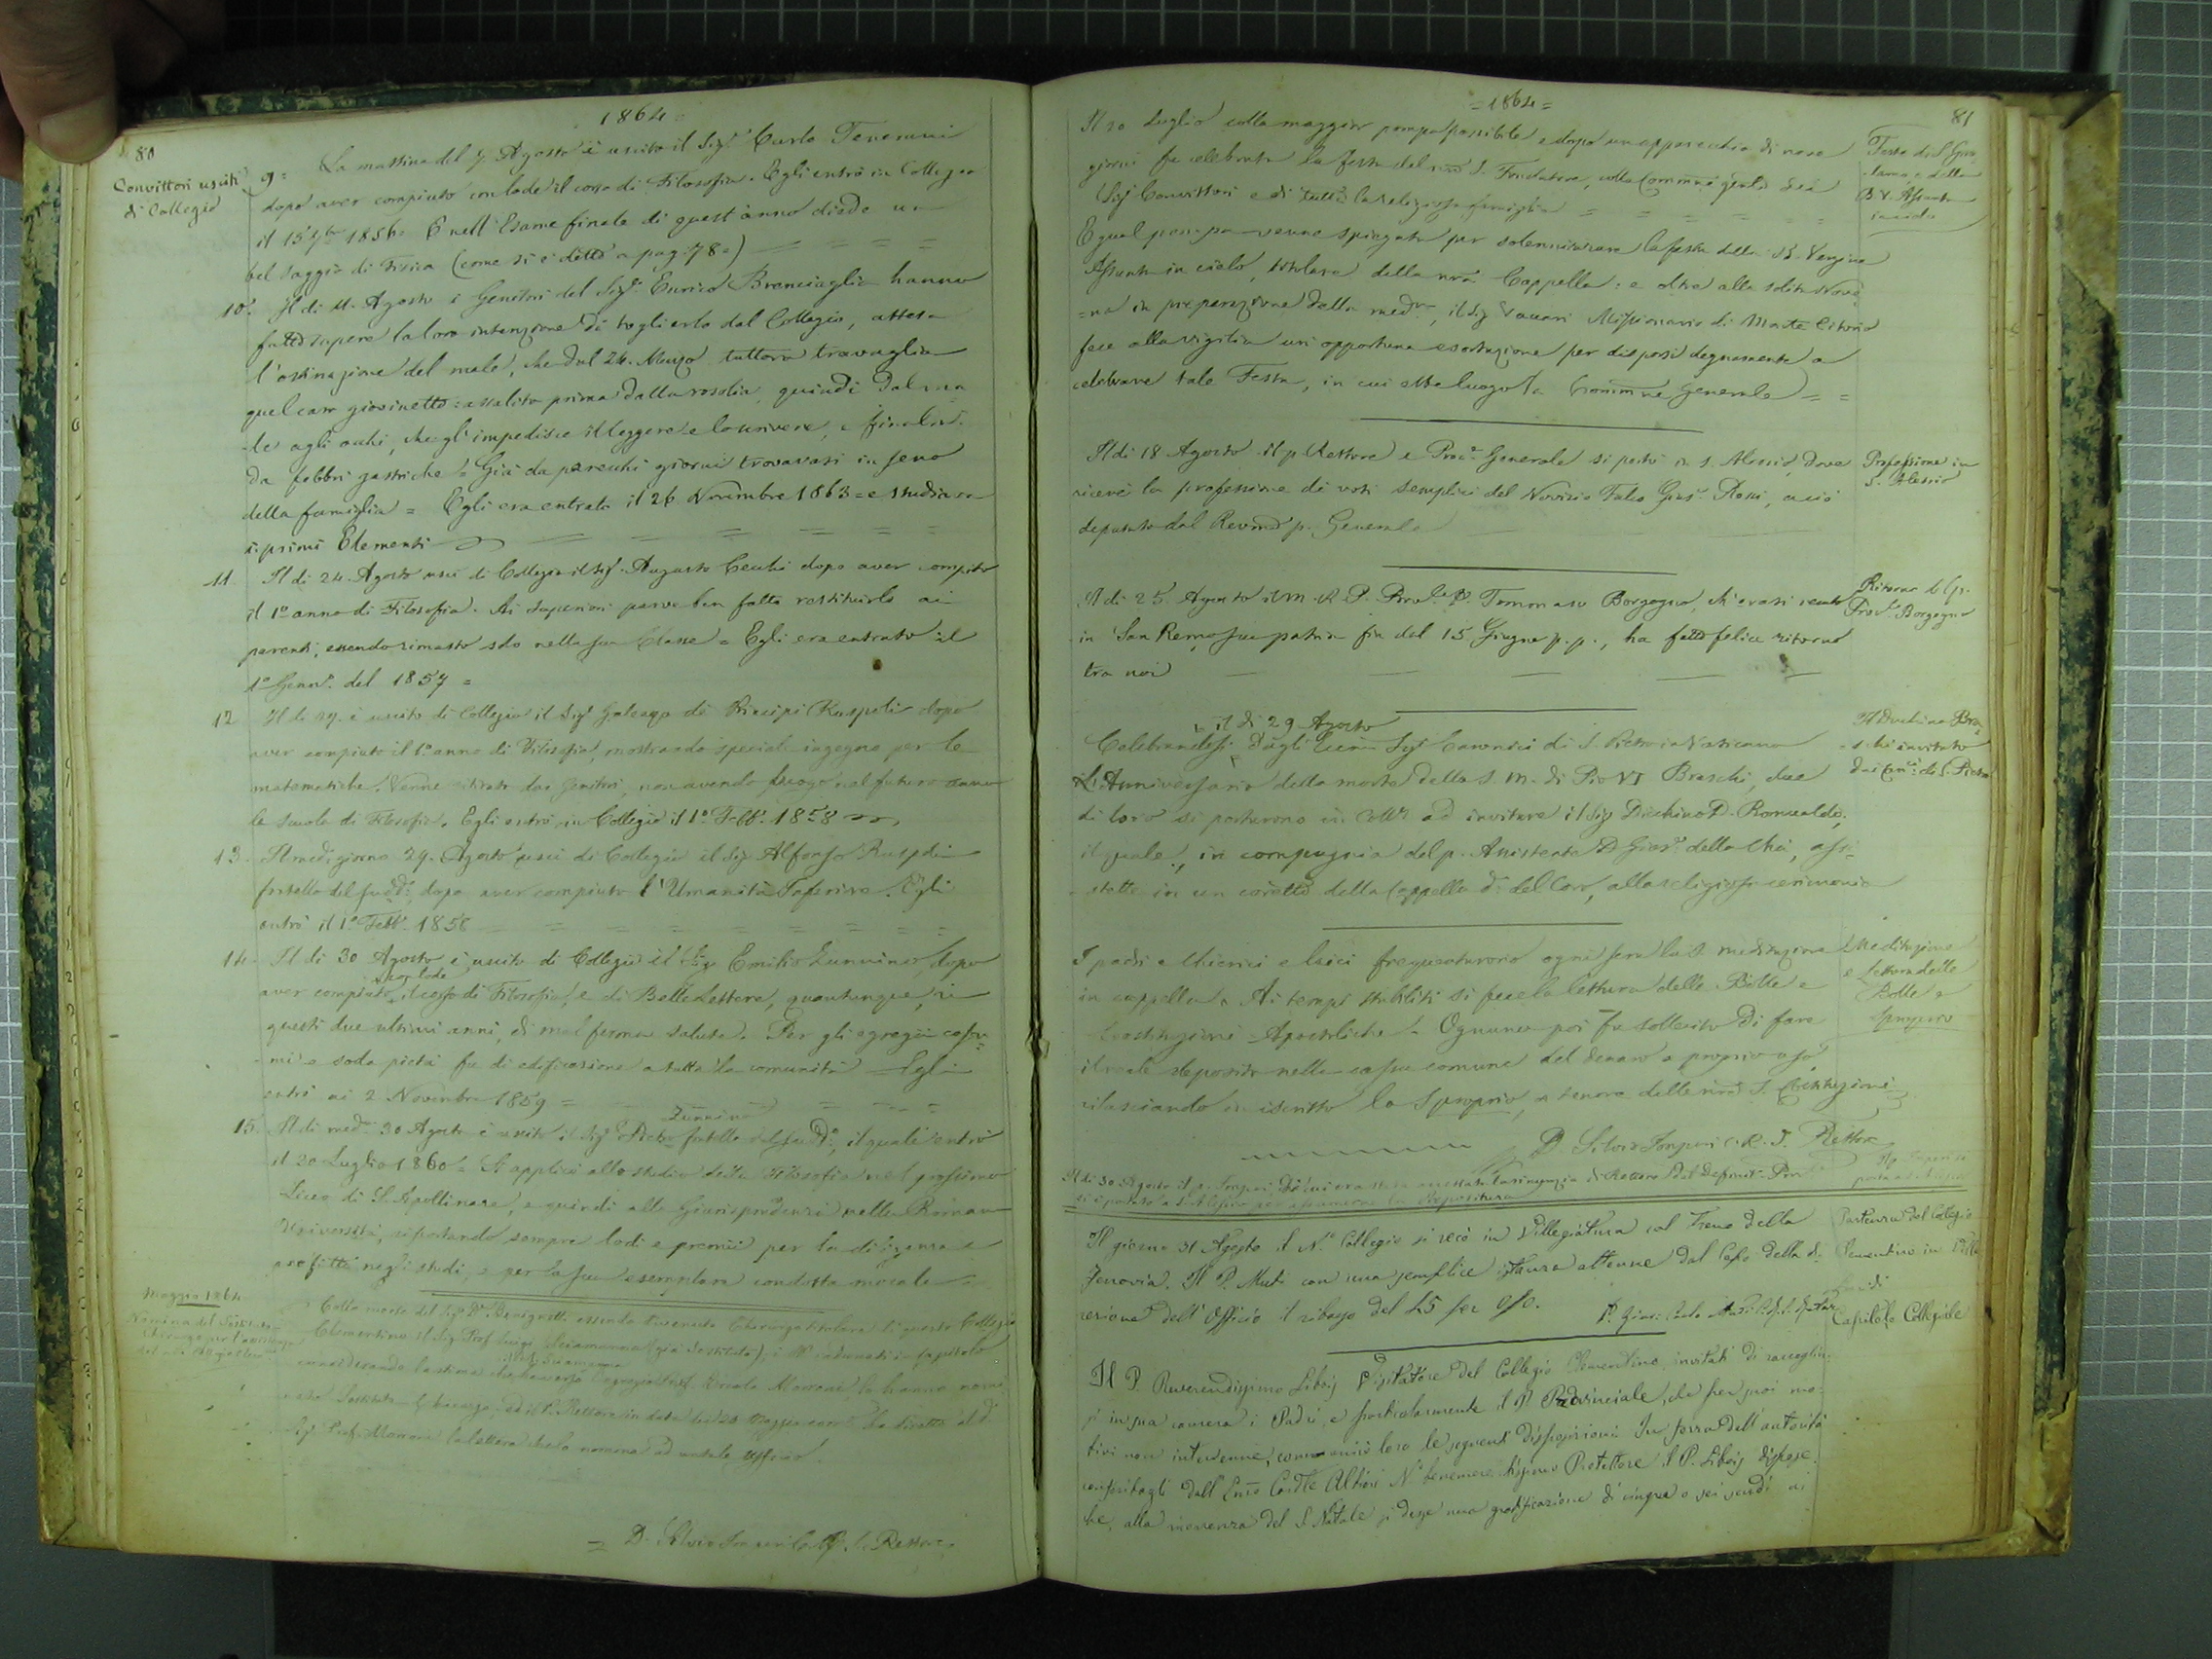 80
1864 =
Convittori usciti
di Collegio
9= La mattina del 9. Agosto è uscito il Sigr. Carlo Tenerani
dopo aver compiuto con lode il corso di Filosofia. Egli entrò in Collegio
il 15 1856= E nell'Esame finale di quest'anno diede un
bel saggio di Fisica (come si è detto a pag. 78=) = = = =
10. Il dì 11. Agosto i Genitori del Sigr. Enrico Branciaglia hanno
fatto sapere la loro intenzione di toglierlo dal Collegio, attesa
l'ostinazione del male, che dal 24. Marzo tuttora travaglia
quel caro giovinetto: assalito prima dalla rosolia, quindi dal ma
-le agli occhi, che gl'impedisce il leggere e lo scrivere, e
da febbri gastriche = Già da parecchi giorni trovavasi in seno
della famiglia = Egli era entrato il 26. Novembre 1863 = e studiava
i primi Elementi = = = = = =
11. Il dì 24. Agosto uscì di Collegio il Sigr. Augusto Cecchi dopo aver compito
il 1° anno di Filosofia. Ai Superiori parve ben fatto restituirlo ai
parenti, essendo rimasto solo nella sua Classe = Egli era entrato il
1° Genn°. del 1857 =
12 Il dì 29. è uscito di Collegio il Sigr Galeazzo de' Principi Ruspoli dopo
aver compiuto il 1° anno di Filosofia, mostrando speciale ingegno per le
matematiche. Venne ritirato dai Genitori, non avendo luogo nel futuro anno
la scuola di Filosofia. Egli entrò in Collegio il 1° Febb°. 1858
13. Il med° giorno 29. Agosto uscì di Collegio il Sig Alfonso Ruspoli
fratello del sudd°. dopo aver compiuto l'Umanità Inferiore. Egli
entrò il 1° Febb°. 1858 = = = = = =
14. Il dì 30 Agosto è uscito di Collegio il Sig Emilio Zunnino, dopo
aver compiuto con lode il corso di Filosofia, e di Belle Lettere, quantunque, in
questi due ultimi anni, di mal ferma salute. Per gli egregii costu=
-mi e soda pietà fu di edificazione a tutta la comunità = Egli
entrò ai 2 Novembre 1859 = = = =
15. Il dì med° 30 Agosto è uscito il Sigr Pietro Zunnino fratello del sudd°., il quale entrò
il 20 Luglio 1860 = Si applicò allo studio della Filosofia nel prossimo
Liceo di S. Apollinare, e quindi alla Giurisprudenza nella Romana
Università, riportando sempre lodi e premii per la diligenza e
profitto negli studi, e per la sua esemplare condotta morale =
Maggio 1864
Nomina del Sostituto
Chirurgo per
Colla morte del Sigr Dr. Benignetti essendo divenuto Chirurgo titolare di questo Collegio
Clementino il Sig. Prof. Luigi Sciamanna (già Sostituto), i radunati in Capitolo
considerando la stima che ha verso l'egregio Prof. Sciamanna, lo hanno nomi
-nato Sostituto Chirurgo, ed il P. Rettore in data
Sigr. Prof. la lettera che lo nomina ad un tale Officio.
= D. Silvio Imperi C. R. S. Rettore
= 1864 =
81
Il 20 Luglio colla maggior pompa possibile e dopo un apparecchio di nove
giorni fu celebrata la festa del nro S. Fondatore, colla Commne genle dei
Sigri Convittori e di tutta la religiosa famiglia = = = = = =
Festa di S. Giro
-lamo e della
B. V. Assunta
in cielo
Egual pompa venne spiegata per solennizzare la festa della B. Vergine
Assunta in cielo, titolare della nra Cappella: e oltre alla solita Nove
=na in preparazione della medma, il Sig Vaccari Missionario di Monte Citorio
fece alla vigilia un'opportuna esortazione per disporsi degnamente a
celebrare tale Festa, in cui ebbe luogo la Commne Generale = =
Il dì 18 Agosto il p. Rettore e Proc. Generale si portò in S. Alessio, dove
ricevè la professione di voti semplici del Novizio Gius. Rossi, a ciò
deputato dal Revmo p. Generale
Professione in
S. Alessio
Il dì 25. Agosto il M. R. P. Provle D. Tommaso Borgogno, ch'erasi recato
in San Remo sua patria fin dal 15 Giugno p.p., ha fatto felice ritorno
tra noi
Ritorno del p.
Provle Borgogno
il dì 29 Agosto
Celebrandosi dagli Sigri Canonici di S. Pietro in Vaticano
L'Anniversario della morte della S. M. di Pio VI Braschi, due
di loro si portarono in Collo ad invitare il Sig Duchino D. Romualdo;
il quale, in compagnia del p. Assistente D. Gius. della Chà, assi=
-stette in un coretto della Cappella d. del Coro, alla religiosa cerimonia
Il Duchino Bra
-schi invitato
dai Canci di S. Pietro
I padri e Chierici e laici frequentarono ogni sera la S. meditazione
in cappella. Ai tempi stabiliti si fece la lettura delle Bolle e
Costituzioni Apostoliche = Ognuno poi fu sollecito di fare
il reale deposito nella cassa comune del denaro a proprio uso
rilasciando in iscritto lo Sproprio, a tenore delle nre S. Costituzioni
Meditazione
e lettura delle
Bolle e
Sproprio
D. Silvio Imperi C. R. S. Rettore
Il dì 30 Agosto il p. Imperi, di cui era stata accettata la rinunzia di Rettore dal Definit. Provle
si è portato a S. Alessio per assumere la Prepositura
Il p. Imperi si
porta a S. Alessio
Il giorno 31 Agosto il N.° Collegio si recò in Villegiatura col Treno della
Ferrovia. Il P. Muti con una semplice istanza attenne dal Capo della di
rezione dell'Officio il ribasso del 25 per 0/0.
Partenza del Collegio
Clementino in Villa
D. Giov. Carlo Muti C. R. S. Rettore
Capitolo Collegiale
Il P. Reverendissimo Libois Visitatore del Collegio Clementino, invitati di raccoglier
si in sua camera i Padri, e particolarmente il P. Provinciale, che per suoi mo-
tivi non intervenne, comunicò loro le seguenti disposizioni. In forza dell'autorità
conferitagli dall'Emo Cardle Altieri N.° benemeritissimo Protettore il P. Libois dispose
che, alla ricorrenza del S. Natale si desse una gratificazione di cinque o sei scudi ai